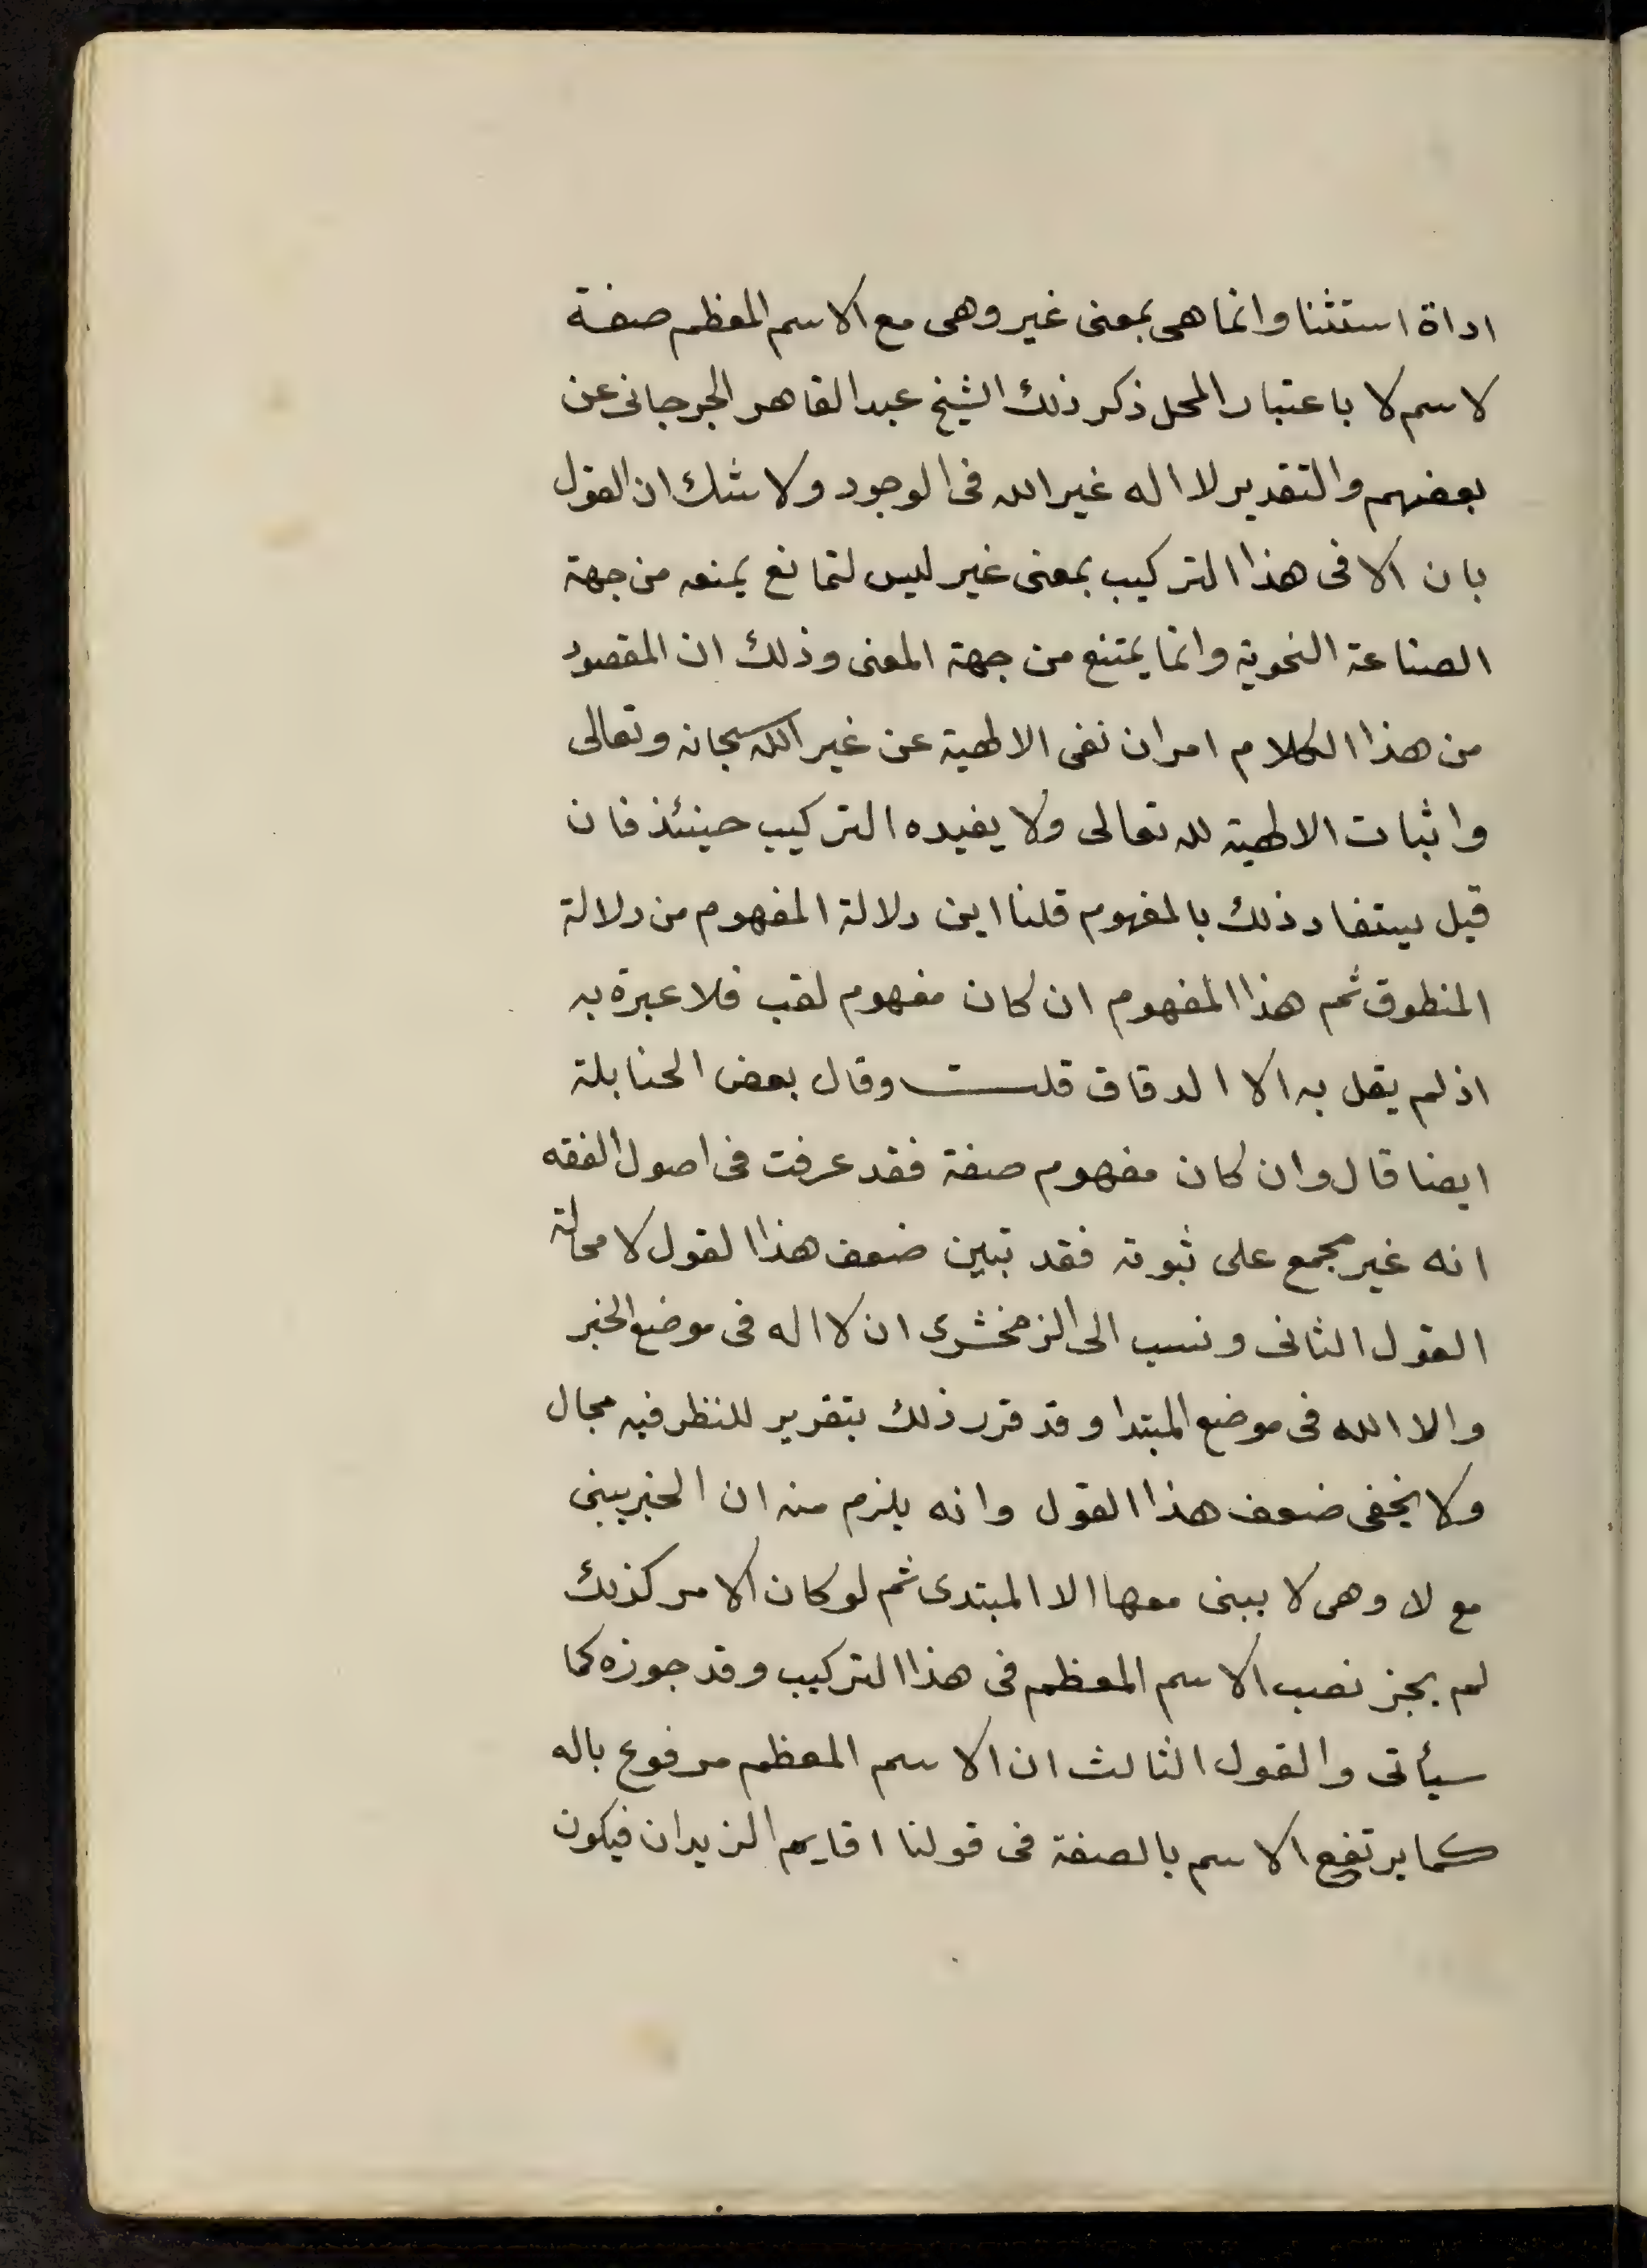 اداة استثنا وانما هى بمعنى غير وهى مع الاسم المعظم صفة
لاسم لا باعتبار المحل ذكر ذلك الشيخ عبد القاهر الجرجانى عن
بعضهم والتقدير لا اله غير الله فى الوجود ولا شك ان القول
بان الا فى هذا التركيب بمعنى غير ليس لتمانع يمنعه من جهة
الصناعة النحوية وانما يمتنع من جهة المعنى وذلك ان المقصود
من هذا الكلام امران نفى الالهية عن غير الله سبحانه وتعالى
واثبات الالهية لله تعالى ولا يفيده التركيب حينئذ فان
قيل يستفاد ذلك بالمفهوم قلنا اين دلالة المفهوم من دلالة
المنطوق ثم هذا المفهوم ان كان مفهوم لقب فلا عبرة به
اذ لم يقل به الا الدقاق قلت وقال بعض الحنابلة
ايضا قال وان كان مفهوم صفة فقد عرفت فى اصول الفقه
انه غير مجمع على ثبوته فقد تبين ضعف هذا القول لا محالة
القول الثانى ونسب الى الزمخشرى ان لا اله فى موضع الخبر
والا الله فى موضع المبتدا وقد قرر ذلك بتقرير للنظر فيه مجال
ولا يخفى ضعف هذا القول وانه يلزم منه ان الخبر يبنى
مع لا وهى لا يبنى معها الا المبتدى ثم لو كان الامر كذلك
لم يجز نصب الاسم المعظم فى هذا التركيب وقد جوزه كما
سيأتى والقول الثالث ان الاسم المعظم مرفوع باله
كما يرتفع الاسم بالصفة فى قولنا اقايم الزيدان فيكون